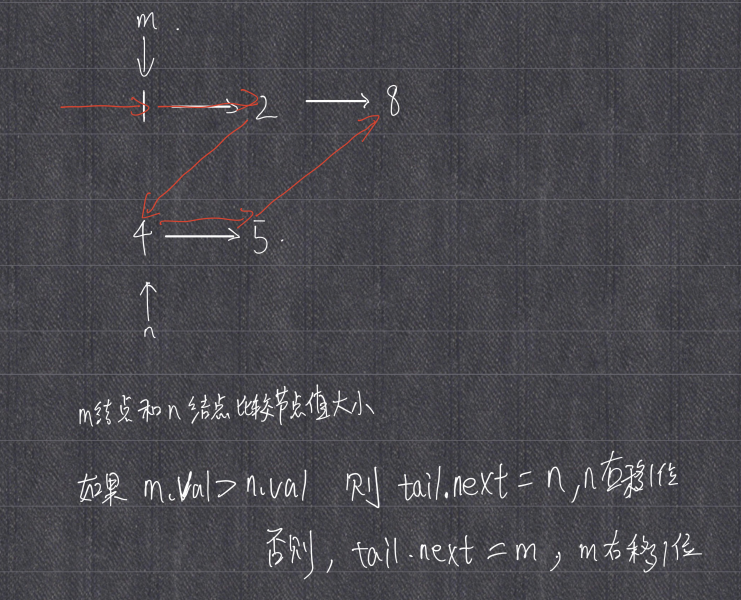 m
1 2 8
4 5
n
m结点和n结点比较节点值大小
如果 m.val > n.val 则 tail.next = n, n右移1位
否则, tail.next = m, m右移1位